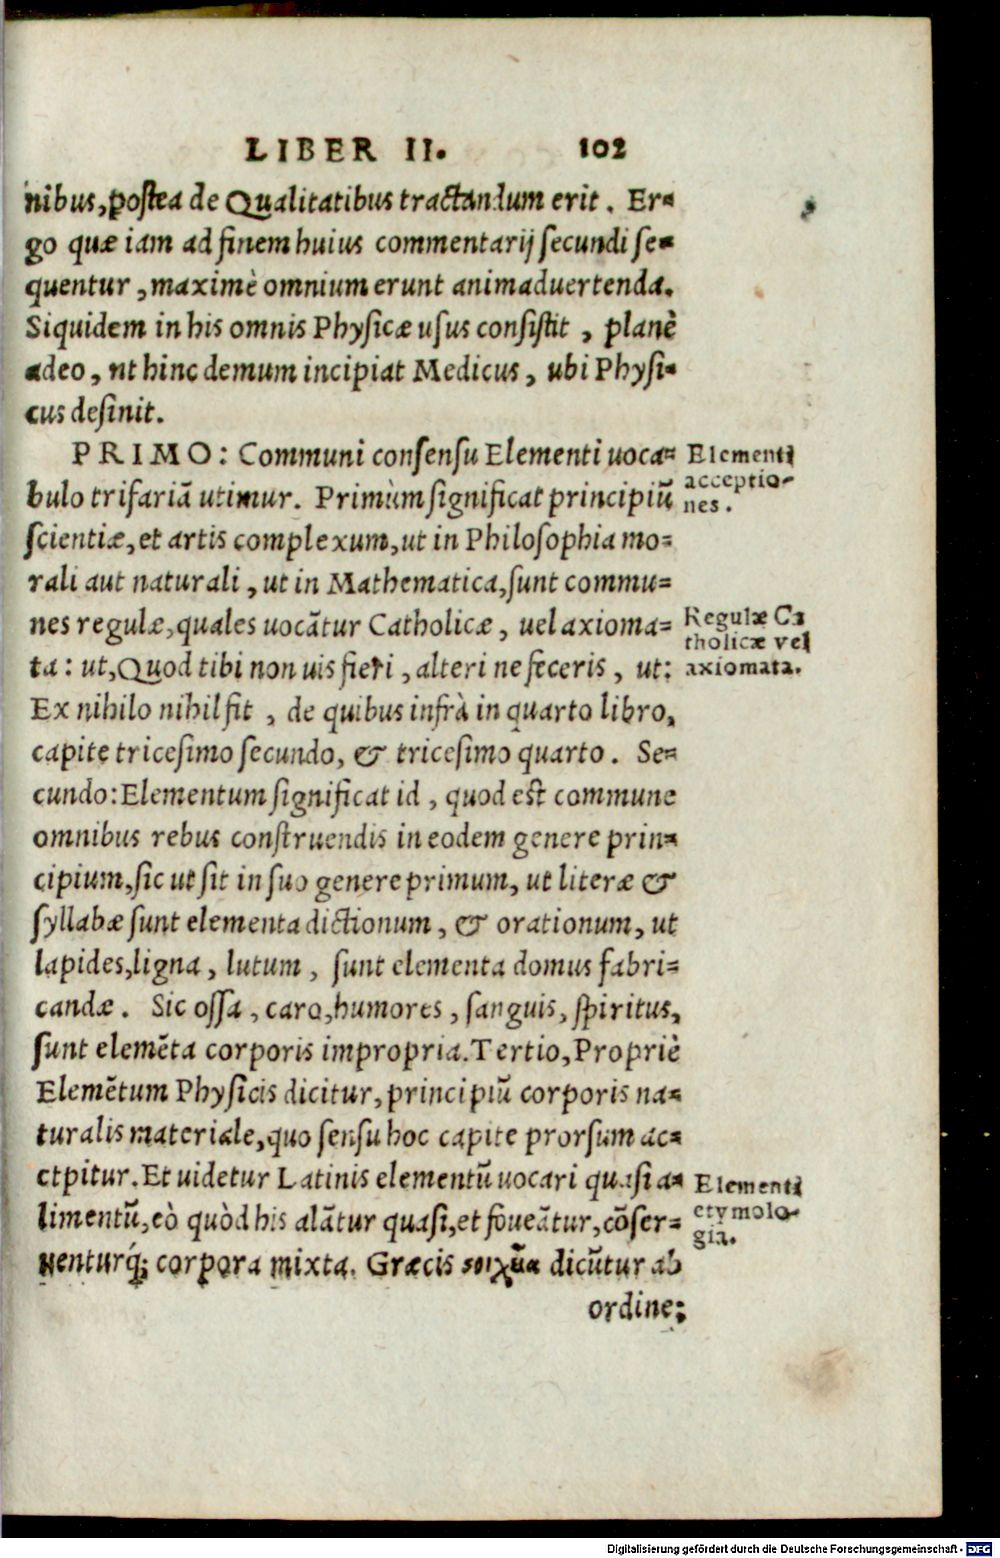 LIBER II. 102
nibus, postea de Qualitatibus tractandum erit. Er=
go quæ iam ad finem huius commentarij secundi se=
quentur, maximè omnium erunt animaduertenda.
Siquidem in his omnis Physicæ usus consistit, planè
adeo, ut hinc demum incipiat Medicus, ubi Physi=
cus desinit.
PRIMO: Communi consensu Elementi uoca=
bulo trifariā utimur. Primùm significat principiū
scientiæ, et artis complexum, ut in Philosophia mo=
rali aut naturali, ut in Mathematica, sunt commu=
nes regulæ, quales uocātur Catholicæ, uel axioma=
ta: ut, Quod tibi non uis fieri, alteri ne feceris, ut:
Ex nihilo nihil fit, de quibus infrà in quarto libro,
capite tricesimo secundo, & tricesimo quarto. Se=
cundo: Elementum significat id, quod est commune
omnibus rebus construendis in eodem genere prin=
cipium, sic ut sit in suo genere primum, ut literæ &
syllabæ sunt elementa dictionum, & orationum, ut
lapides, ligna, lutum, sunt elementa domus fabri=
candæ. Sic ossa, caro, humores, sanguis, spiritus,
sunt elemēta corporis impropria. Tertio, Propriè
Elemētum Physicis dicitur, principiū corporis na=
turalis materiale, quo sensu hoc capite prorsum ac=
ctpitur. Et uidetur Latinis elementū uocari quasi a=
limentū, eò quòd his alātur quasi, et foueātur, cōser=
uenturq́; corpora mixta. Græcis dicūtur ab
ordine;
Elementi
acceptio-
nes.
Regulæ Ca
tholicæ vel
axiomata.
Elementi
etymolo-
gia.
Digitalisierung gefördert durch die Deutsche Forschungsgemeinschaft - DFG